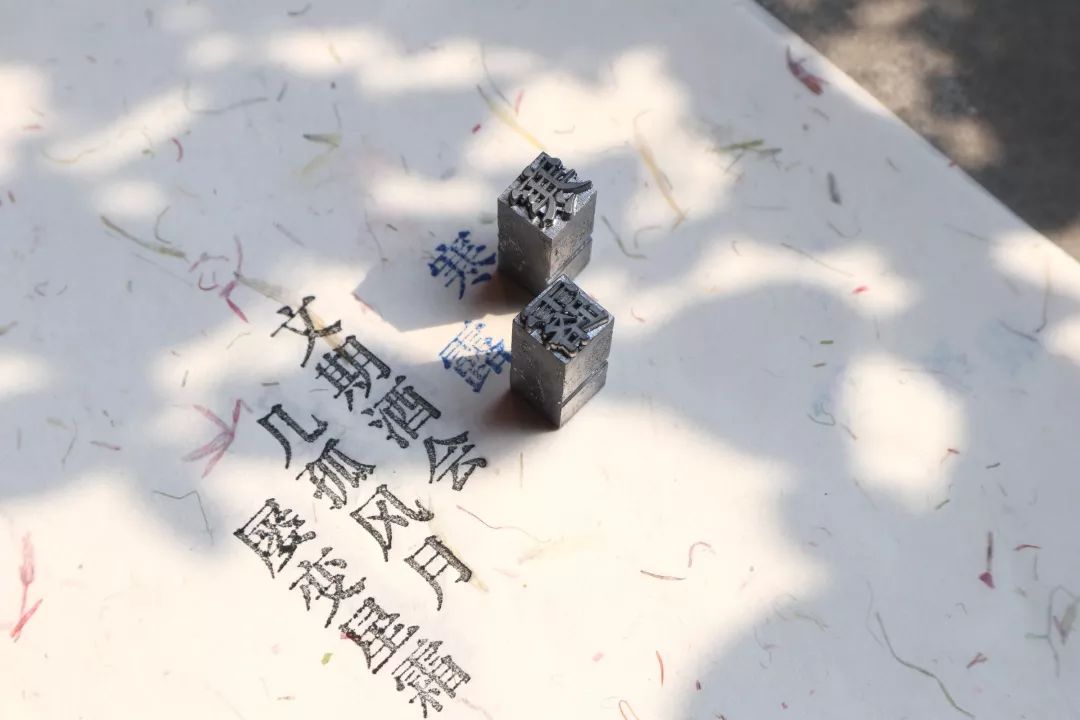 寒露
文期酒会
几孤风月
屡变星霜